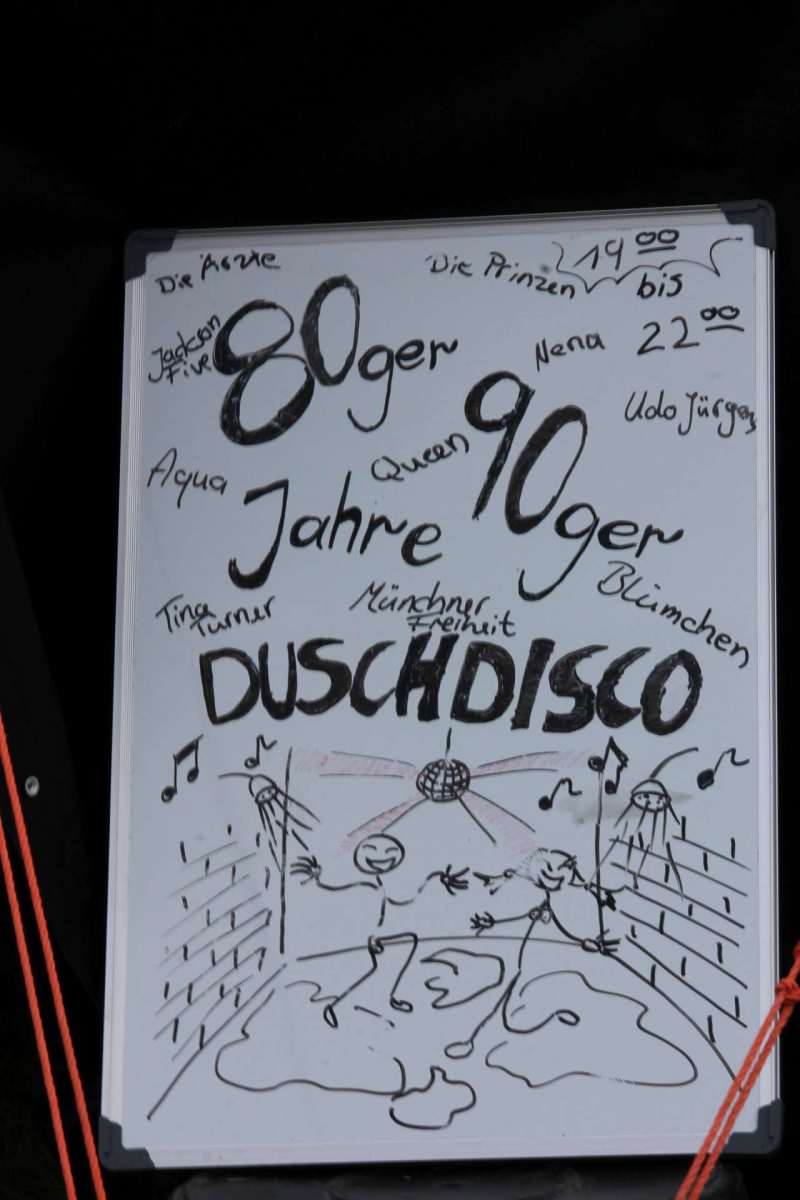 Die Ärzte
Die Prinzen
19 00
bis
22 00
Jackson
Five
80ger
Nena
Udo Jürgens
Aqua
Queen
90ger
Jahre
Tina
Turner
Münchner
Freiheit
Blümchen
DUSCHDISCO